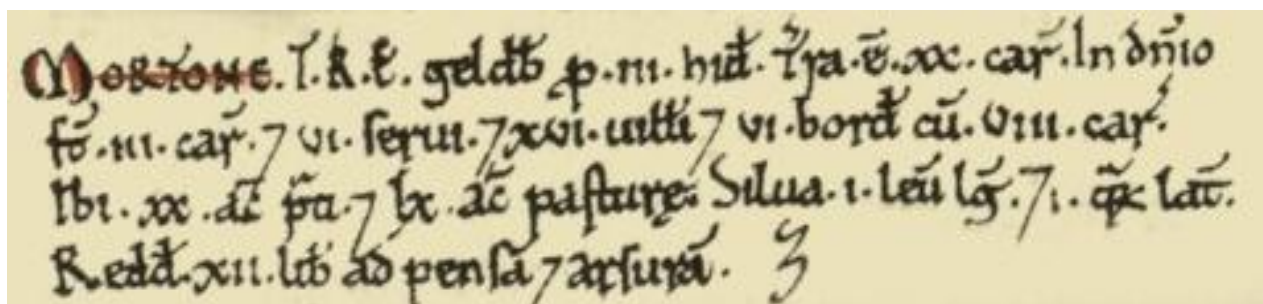 MORTONE. T.R.E. geldb̄ p. iii. hid̄. T̄ra. ē. xx. car̄. In dn̄io
st̄. iii. car̄. ⁊ vi. serui. ⁊ xvi. uilłi ⁊ vi. bord̄ cū. viii. car̄.
Ibi. xx. ac̄ p̄ti. ⁊ lx. ac̄ pasturę. Silua. i. leū lḡ. ⁊ i. q̄ꝝ lat̄.
Redd̄. xii. lib̄ ad pensā ⁊ arsurā. ʒ